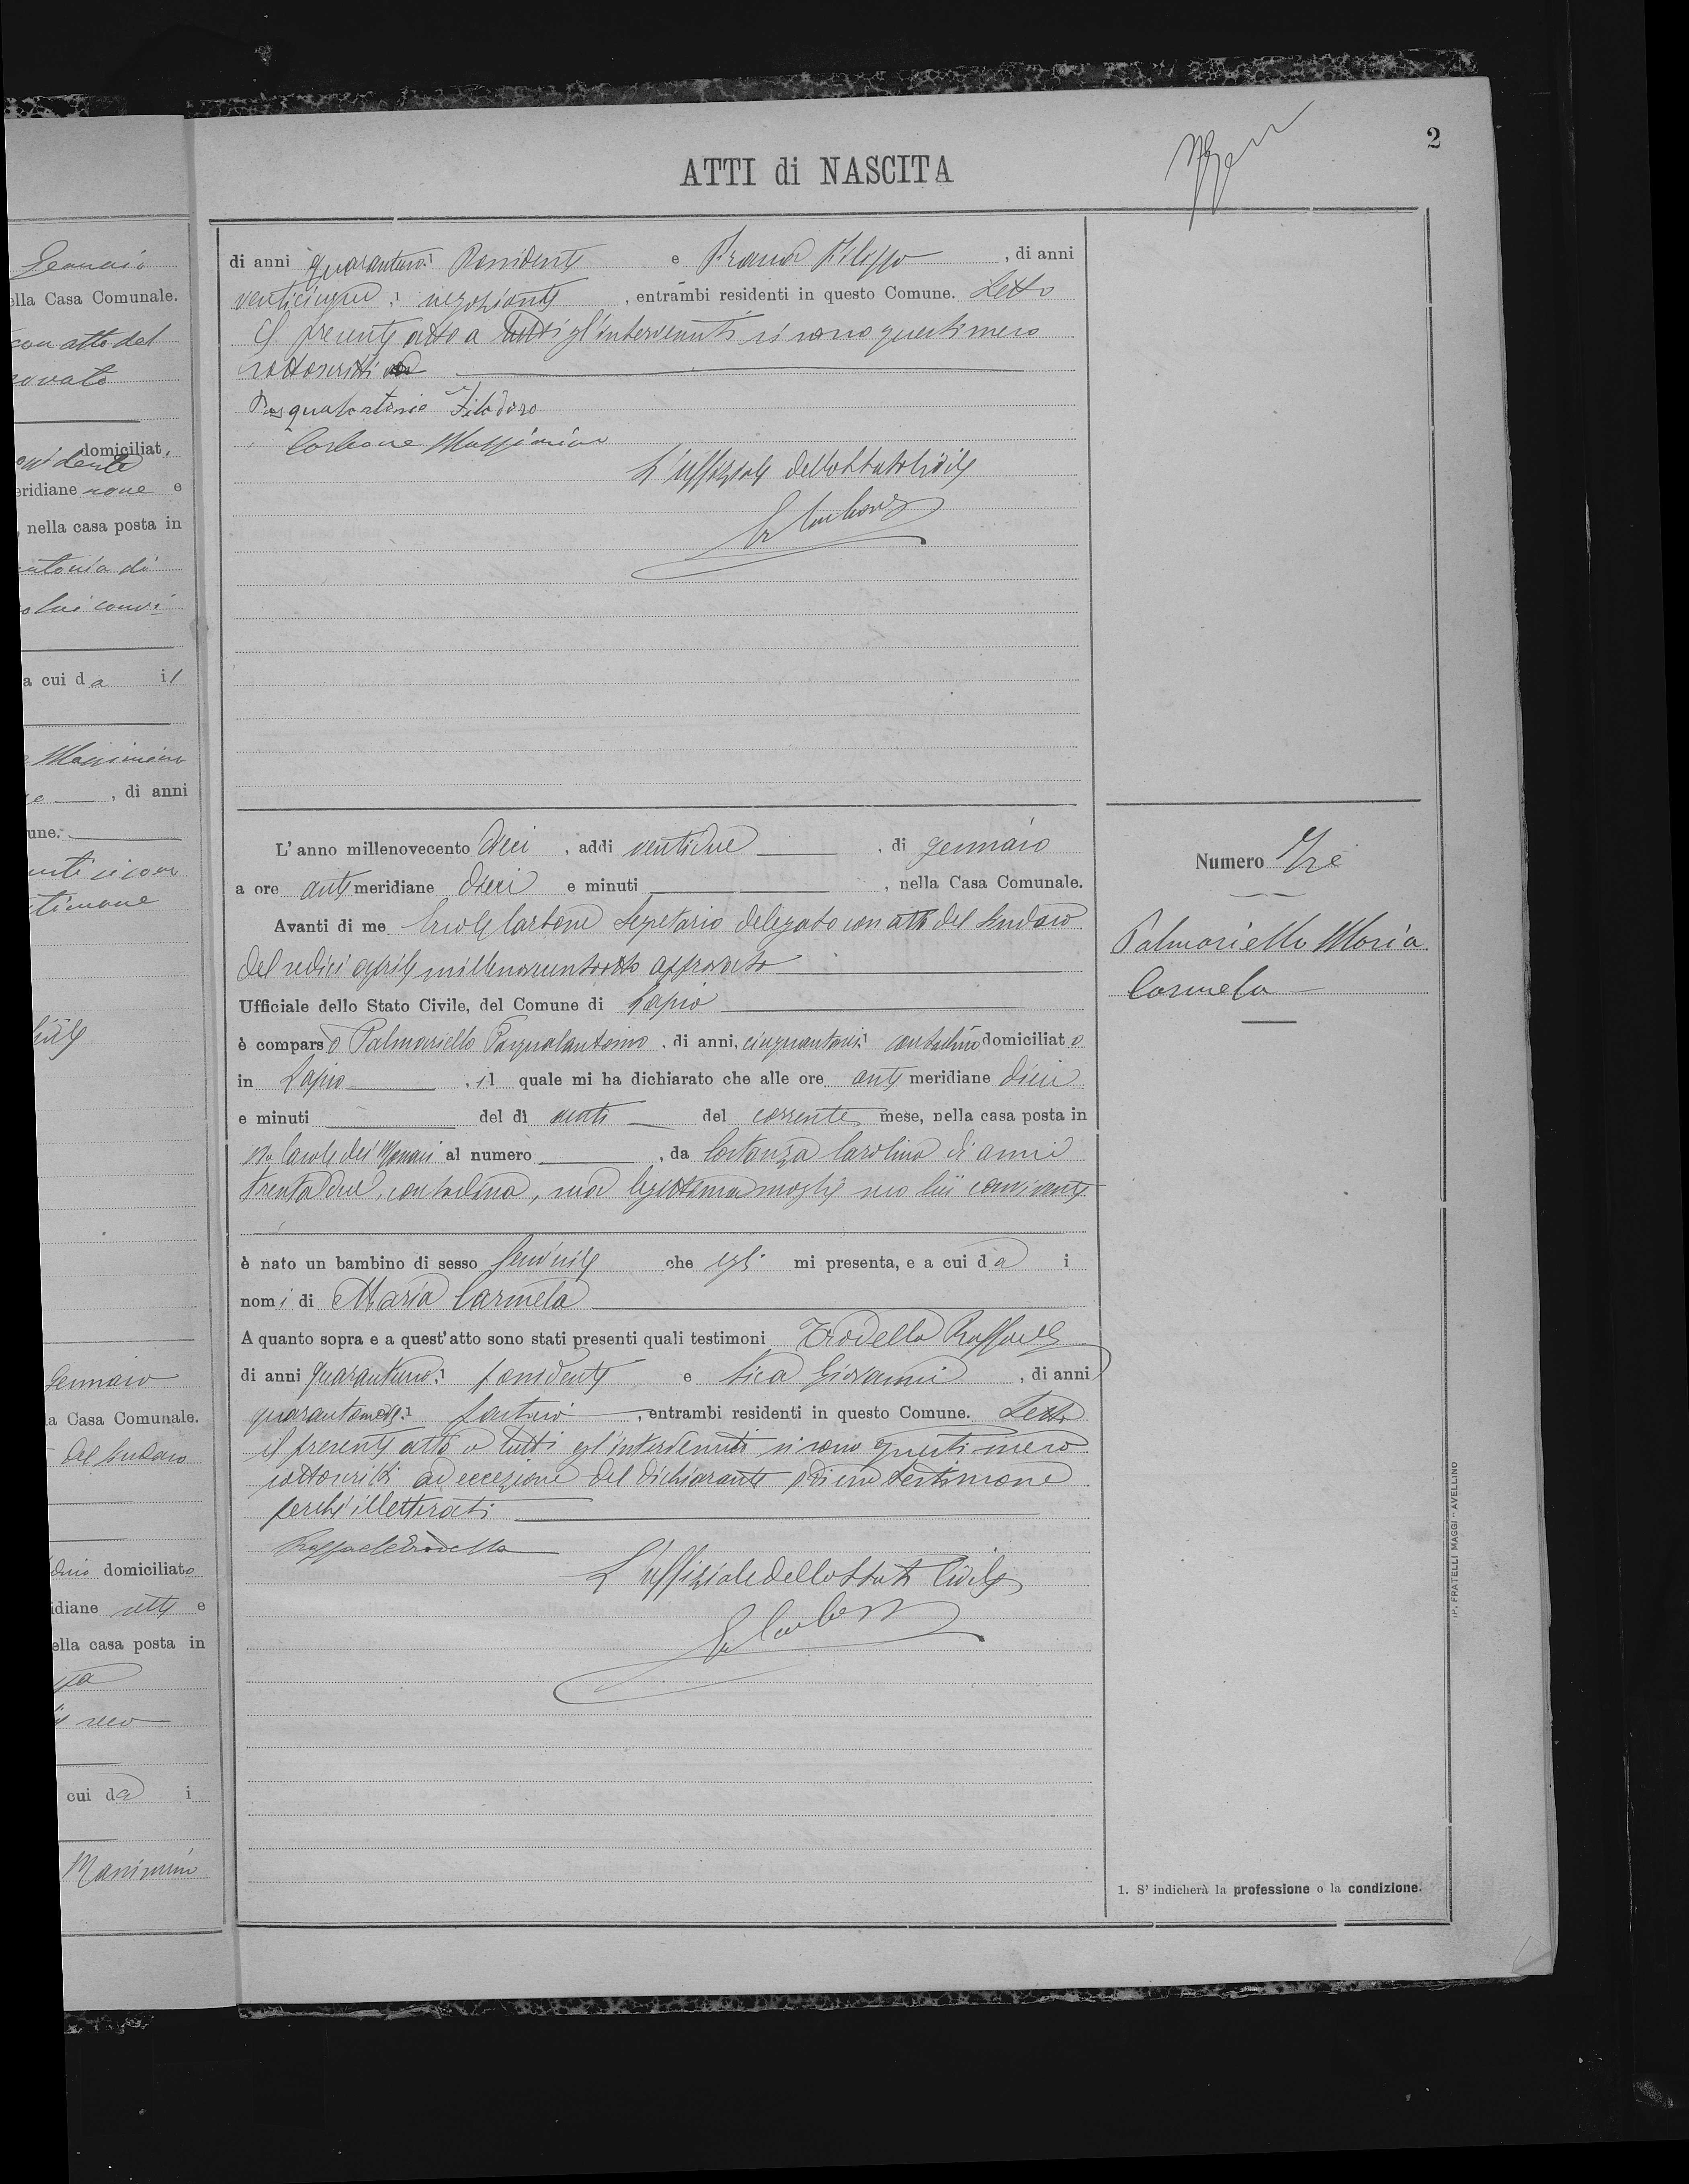 2
ATTI di NASCITA
Gennaio
ella Casa Comunale.
con atto del
rovato
domiciliat
eridiane nove e
, nella casa posta in
a cui da il
, di anni
une.
Gennaio
a Casa Comunale.
del Sindaco
domiciliato
idiane sette e
ella casa posta in
seco
cui da i
di anni quarantuno 1 Possidente e Filippo , di anni
venticinque 1 negoziante , entrambi residenti in questo Comune. Letto
il presente atto a tutti gl'intervenuti si sono questi meco
sottoscritti
Pasqualantonio Filadoro
Carbone Massimino
L'uffiziale dello Stato Civile
E Carbone
L'anno millenovecento dieci , addì ventidue , di gennaio
a ore antimeridiane dieci e minuti , nella Casa Comunale.
Avanti di me Ercole Carbone Segretario delegato con atto del Sindaco
del sedici aprile millenovecentootto approvato
Ufficiale dello Stato Civile, del Comune di Lapio
è comparso Palmariello Pasqualantonio , di anni, cinquantasei 1 contadino domiciliato
in Lapio , il quale mi ha dichiarato che alle ore antimeridiane dieci
e minuti del dì venti del corrente mese, nella casa posta in
via dei Monaci al numero , da Costanza Carolina di anni
trentadue, contadina, sua legittima moglie seco lui convivente
è nato un bambino di sesso feminile che egli mi presenta, e a cui dà i
nomi di Maria Carmela
A quanto sopra e a quest'atto sono stati presenti quali testimoni Trodella Raffaele
di anni quarantuno 1 possidente e Sica Giovanni , di anni
quarantanove 1 , entrambi residenti in questo Comune. Letto
il presente atto a tutti gl'intervenuti si sono questi meco
sottoscritti ad eccezione del dichiarante e di un testimone
perché illetterati
Raffaele Trodella
L'uffiziale dello Stato Civile
E Carbone
Numero Tre
Palmariello Maria
Carmela
1. S'indicherà la professione o la condizione.
IP. FRATELLI MAGGI - AVELLINO